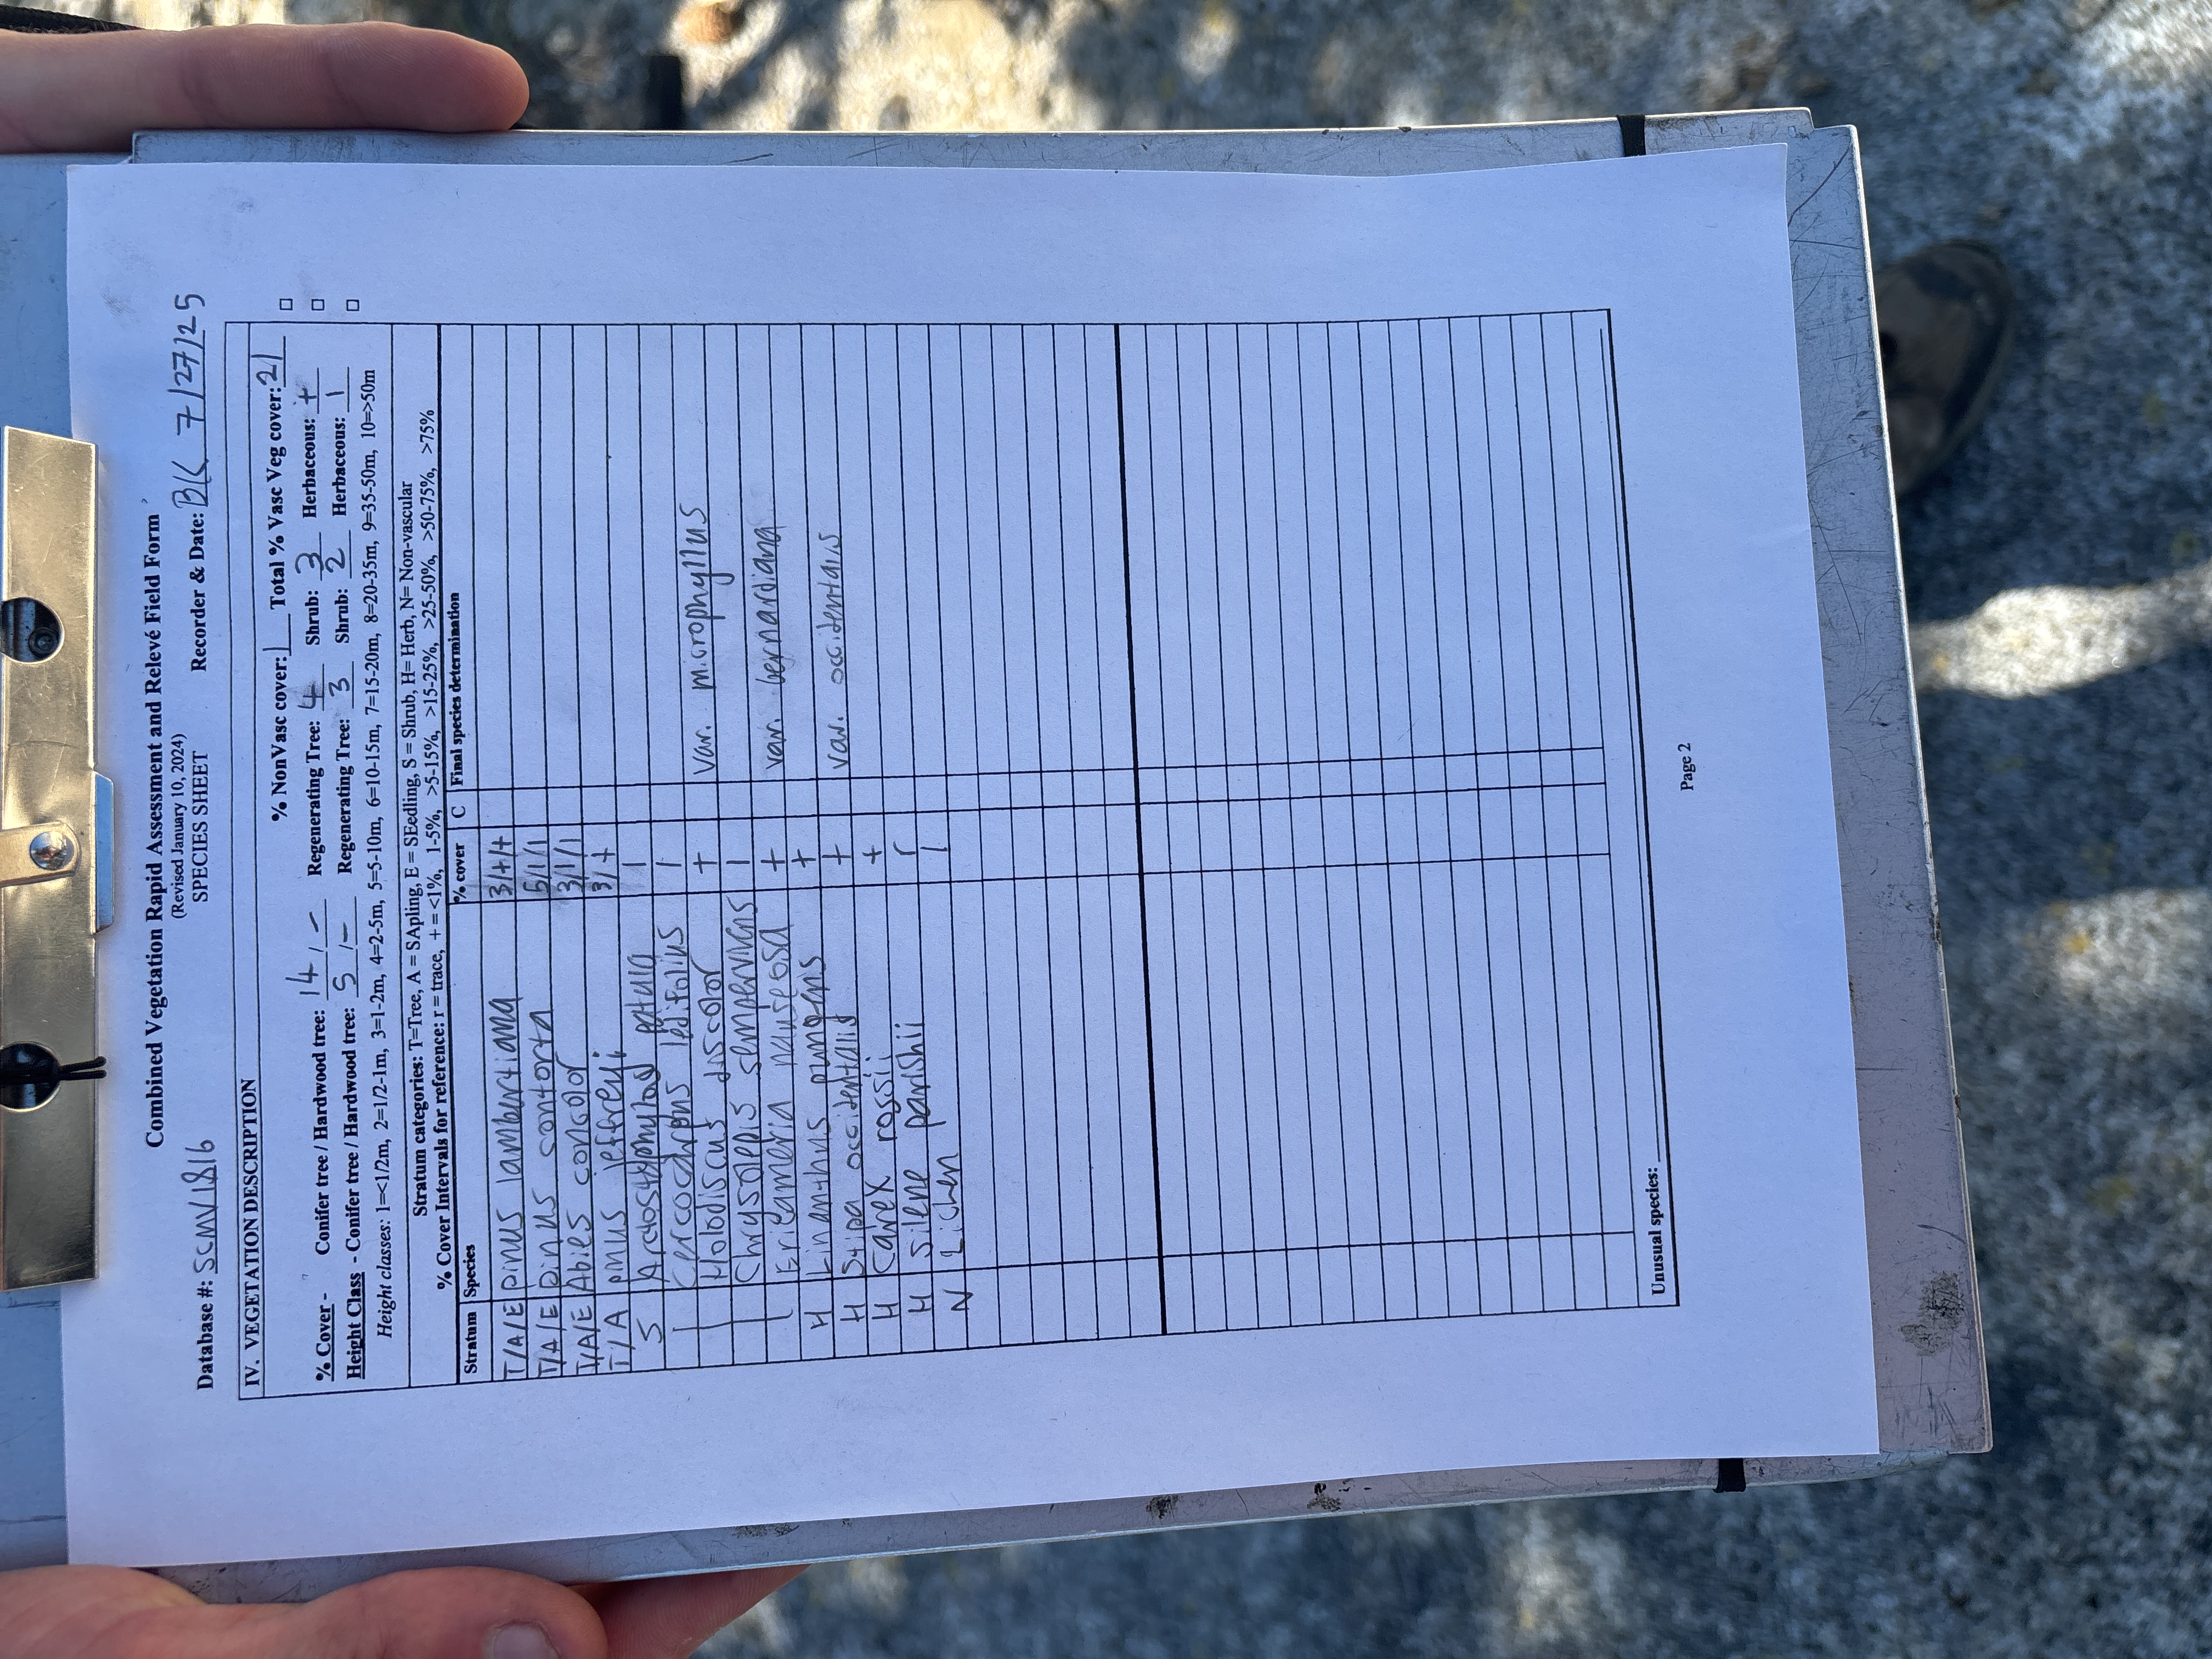 Combined Vegetation Rapid Assessment and Relevé Field Form
(Revised January 10, 2024)
SPECIES SHEET
Database #: SCMV1816 Recorder & Date: BK 7/27/25
IV. VEGETATION DESCRIPTION
% NonVasc cover: 1 Total % Vasc Veg cover: 21
% Cover - Conifer tree / Hardwood tree: 14 / - Regenerating Tree: 4 Shrub: 3 Herbaceous: +
Height Class - Conifer tree / Hardwood tree: 5 / - Regenerating Tree: 3 Shrub: 2 Herbaceous: 1
Height classes: 1=<1/2m, 2=1/2-1m, 3=1-2m, 4=2-5m, 5=5-10m, 6=10-15m, 7=15-20m, 8=20-35m, 9=35-50m, 10=>50m
Stratum categories: T=Tree, A = SApling, E = SEedling, S = Shrub, H= Herb, N= Non-vascular
% Cover Intervals for reference: r = trace, + = <1%, 1-5%, >5-15%, >15-25%, >25-50%, >50-75%, >75%
Stratum Species % cover C Final species determination
T/A/E pinus lambertiana 3/+/+
T/A/E pinus contorta 5/1/1
T/A/E Abies concolor 3/1/1
T/A pinus jeffreyi 3/+
S Arctostaphylos patula 1
| Cercocarpus ledifolius 1
| Holodiscus discolor + var. microphyllus
| Chrysolepis sempervirens 1
| Ericameria nauseosa + var. bernardiana
H Linanthus pungens +
H Stipa occidentalis + var. occidentalis
H Carex rossii +
H Silene parishii r
N Lichen 1
Unusual species:
Page 2